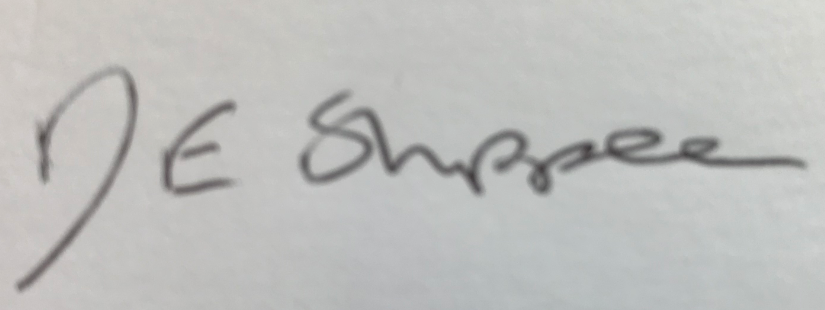 D E Shippee